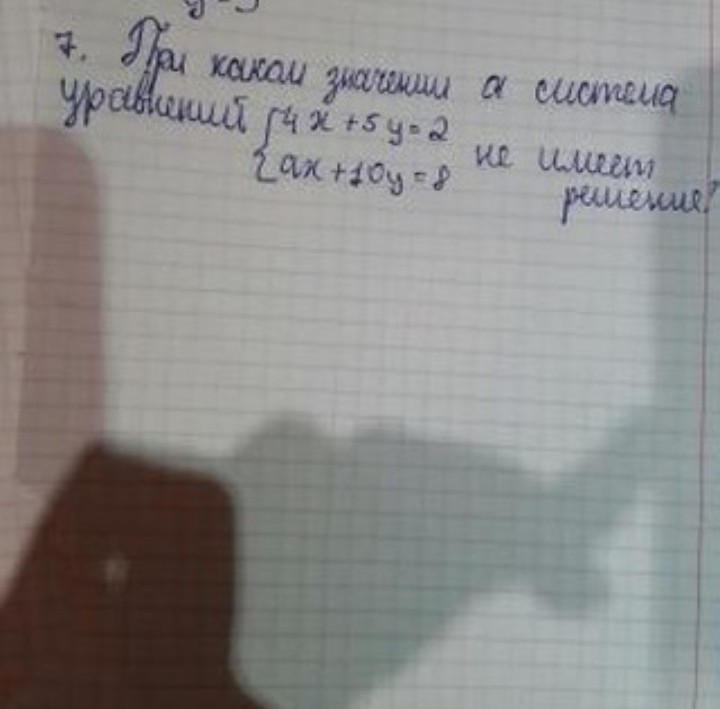 7. При каком значении а система
уравнений {4x+5y=2
{ax+10y=8 не имеет
решения?